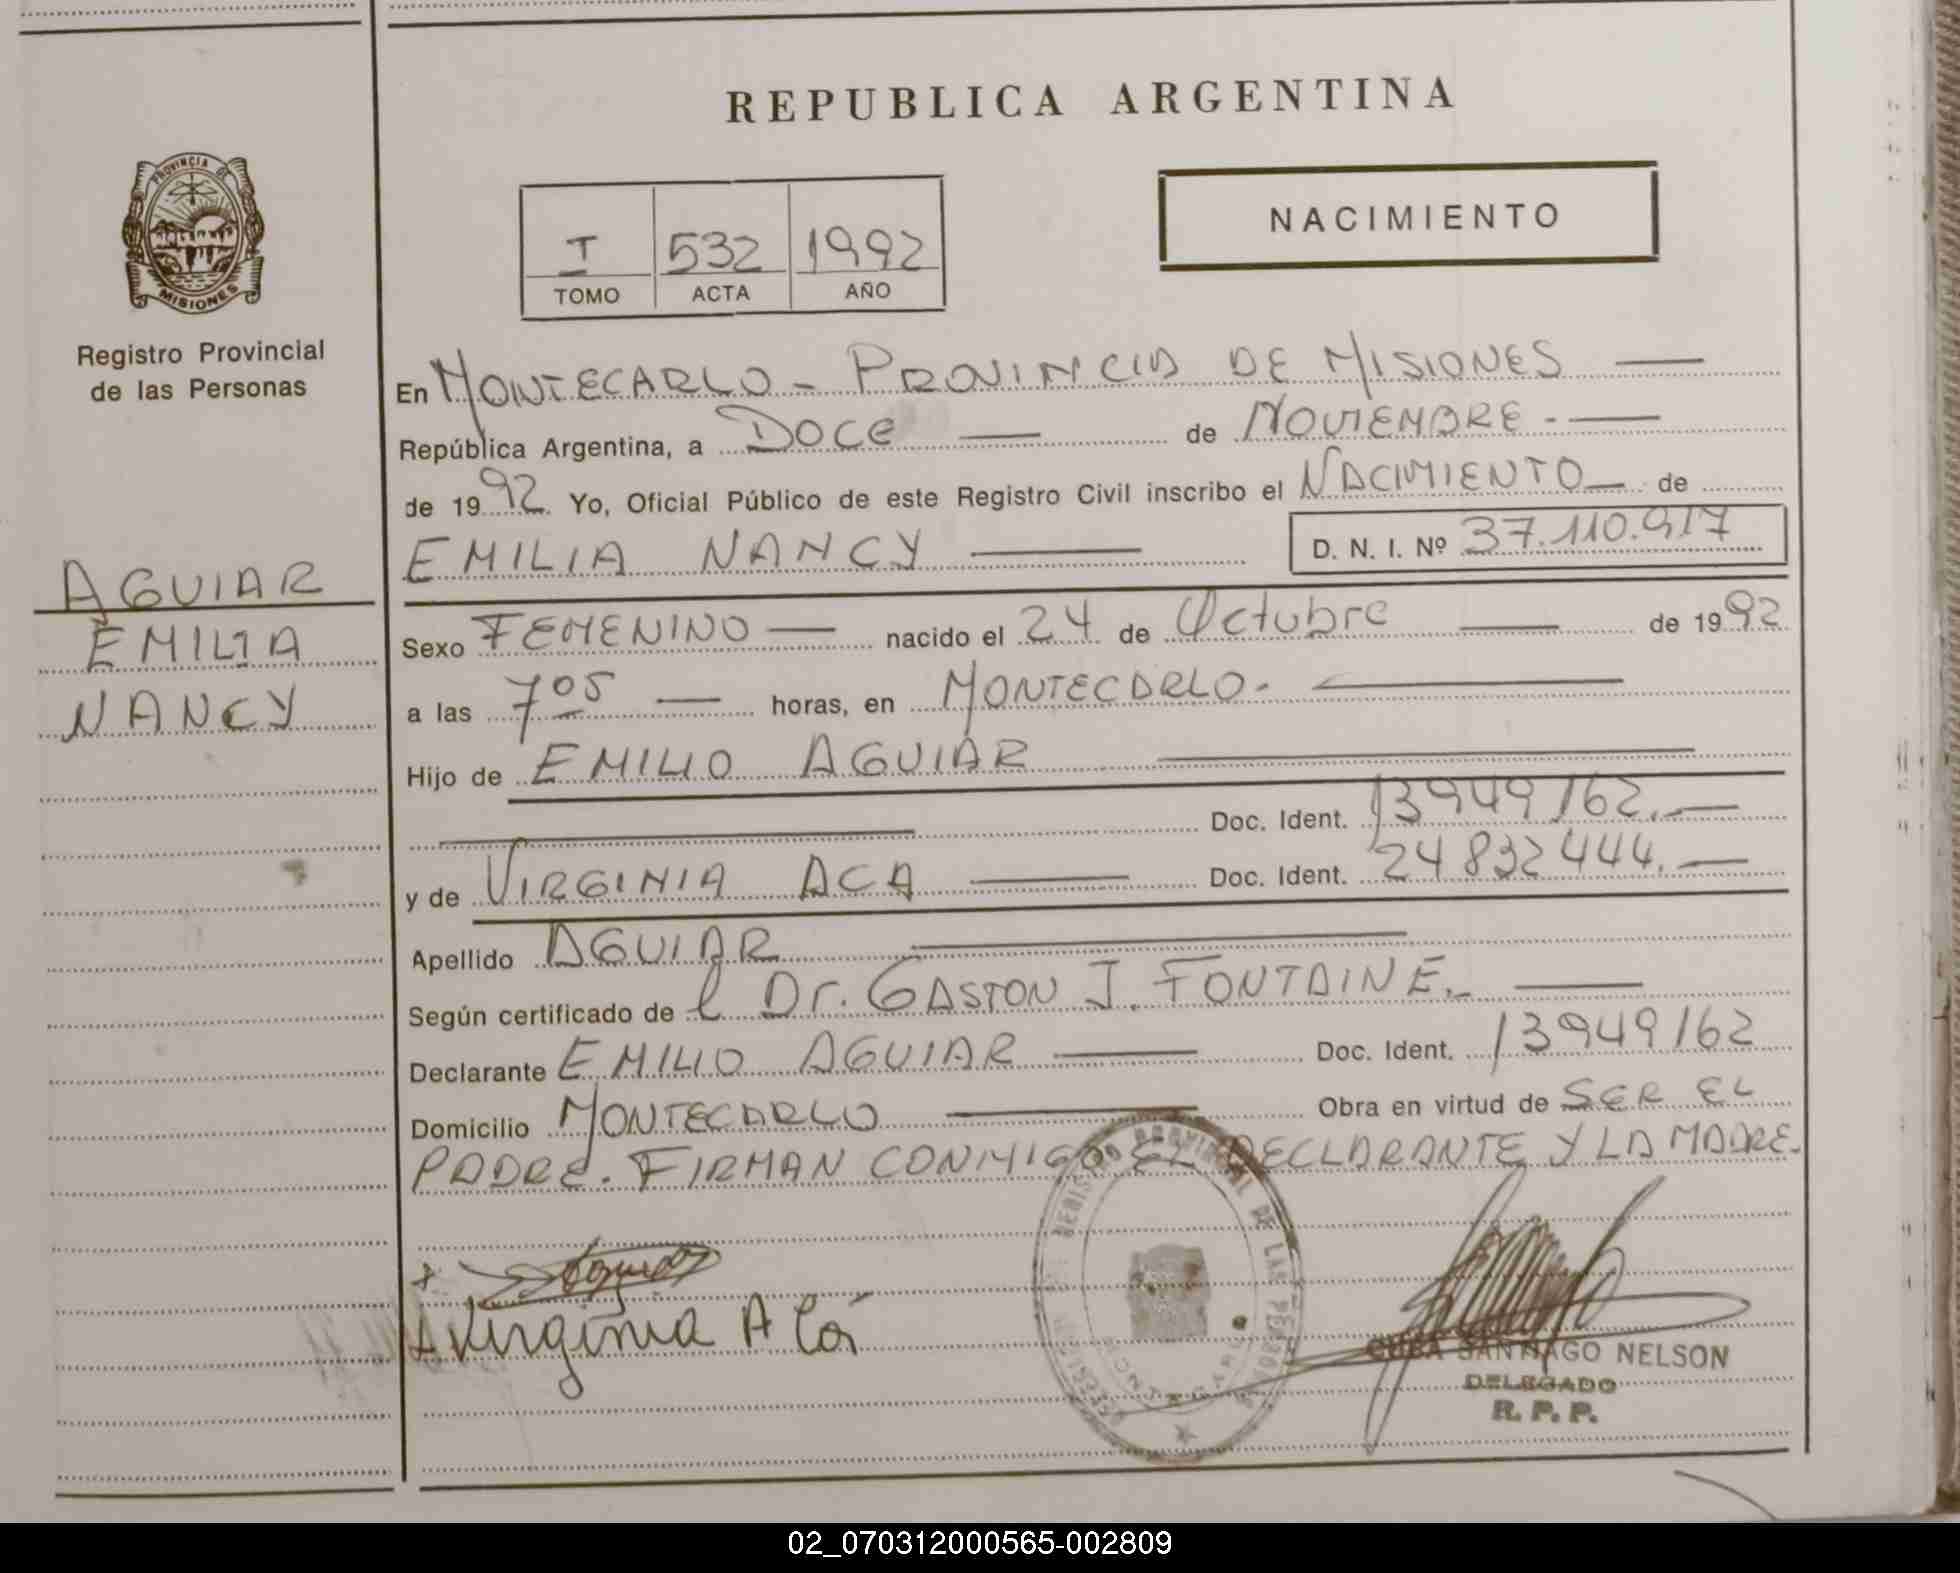 REPUBLICA ARGENTINA
PROVINCIA DE
MISIONES
Registro Provincial
de las Personas
I 532 1992
TOMO ACTA AÑO
NACIMIENTO
En MONTECARLO - PROVINCIA DE MISIONES
República Argentina, a DOCE de NOVIEMBRE.-
de 1992. Yo, Oficial Público de este Registro Civil inscribo el NACIMIENTO de
EMILIA NANCY D. N. I. Nº 37.110.917
AGUIAR
EMILIA
NANCY
Sexo FEMENINO nacido el 24 de Octubre de 1992
a las 7 05 horas, en MONTECARLO.-
Hijo de EMILIO AGUIAR
Doc. Ident. 13949162.-
y de VIRGINIA ACA Doc. Ident. 24832444.-
Apellido AGUIAR
Según certificado de l Dr. GASTON J. FONTAINE.-
Declarante EMILIO AGUIAR Doc. Ident. 13949162
Domicilio MONTECARLO Obra en virtud de SER EL
PADRE. FIRMAN CONMIGO EL DECLARANTE Y LA MADRE.
x
Virginia A Cá
PROVINCIAL DE LAS PERSONAS
CUBA SANTIAGO NELSON
DELEGADO
R. P. P.
02_070312000565-002809